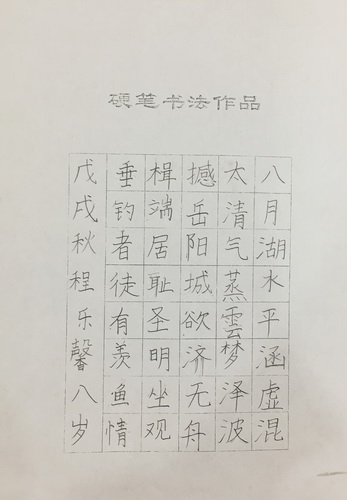 硬笔书法作品
八月湖水平涵虚混
太清气蒸雲梦泽波
撼岳阳城欲济无舟
楫端居耻圣明坐观
垂钓者徒有羡鱼情
戊戌秋程乐馨八岁